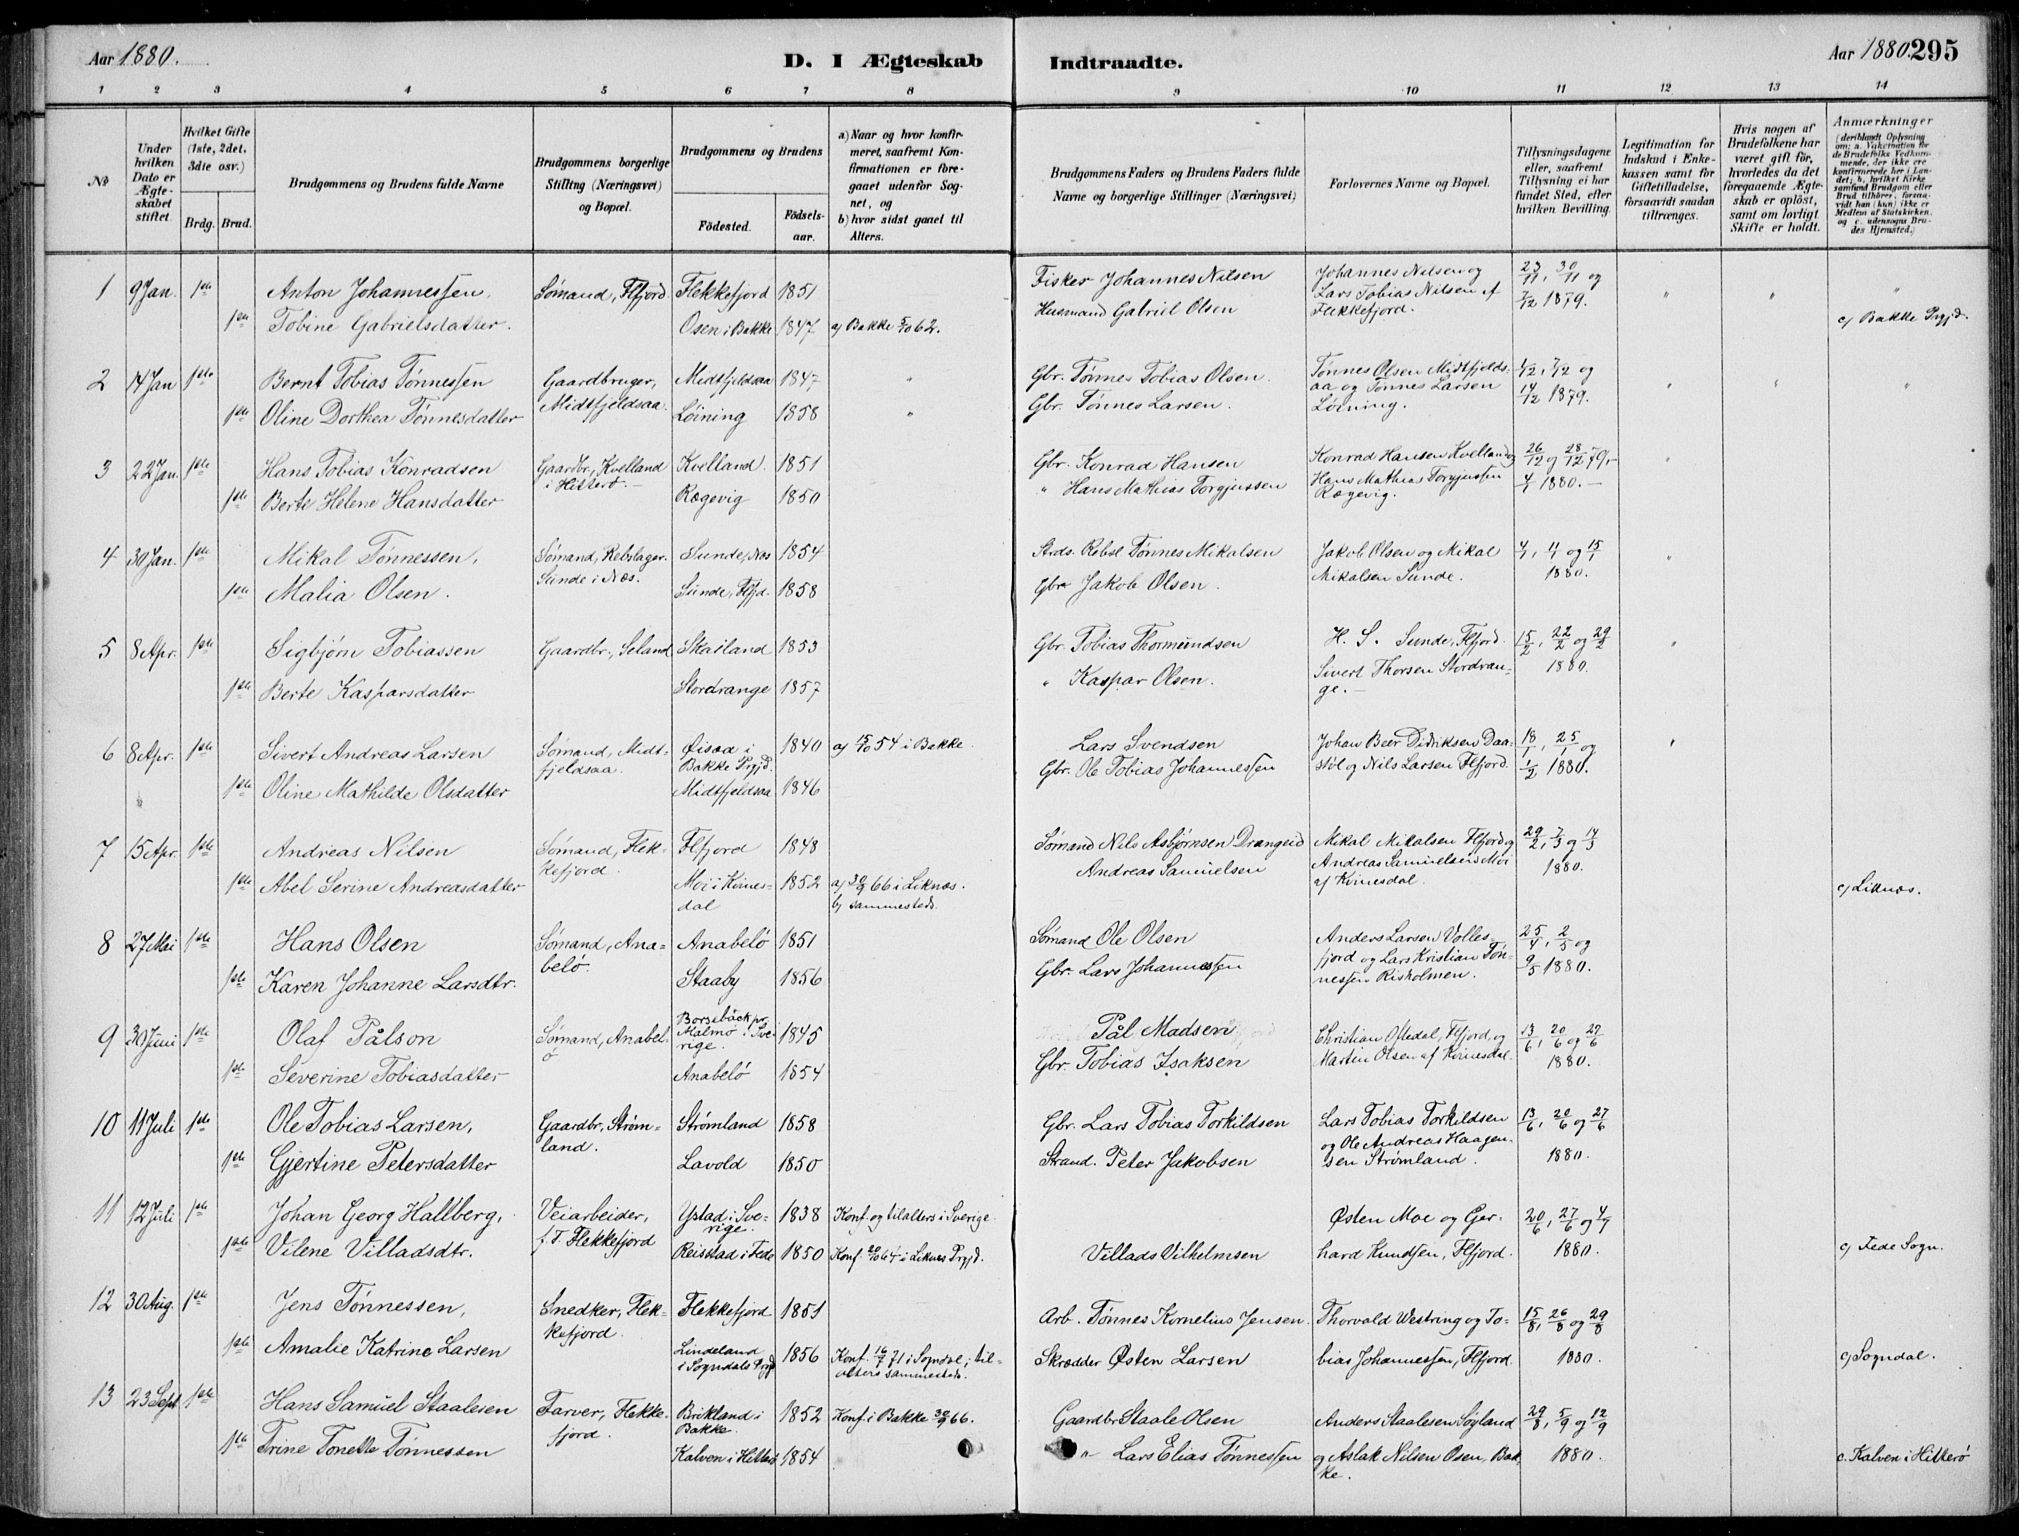 Aar 1880.
D. I Ægteskab
Indtraadte.
Aar 1880. 295
1 2 3 4 5 6 7 8 9 10 11 12 13 14
No
Under hvilken Dato er Ægteskabet stiftet.
Hvilket Gifte (1ste, 2det, 3die osv.)
Brdg. Brud.
Brudgommens og Brudens fulde Navne
Brudgommens borgerlige Stilling (Næringsvei) og Bopæl.
Brudgommens og Brudens
Födested.
Födselsaar.
a) Naar og hvor konfirmeret, saafremt Konfirmationen er foregaaet udenfor Sognet, og
b) hvor sidst gaaet til Alters.
Brudgommens Faders og Brudens Faders fulde Navne og borgerlige Stillinger (Næringsvei)
Forlovernes Navne og Bopæl.
Tillysningsdagene eller, saafremt Tillysning ei har fundet Sted, efter hvilken Bevilling.
Legitimation for Indskud i Enkekassen samt for Giftetilladelse, forsaavidt saadan tiltrænges.
Hvis nogen af Brudefolkene har været gift för, hvorledes da det foregaaende Ægteskab er oplöst, samt om lovligt Skifte er holdt.
Anmærkninger (deriblandt Oplysning om: a. Vakcination for de Brudefolks Vedkommende, der ikke ere konfirmerede her i Landet; b. hvilket Kirkesamfund Brudgom eller Brud tilhörer, forsaavidt han (hun) ikke er Medlem af Statskirken, og c. udensogns Brudes Hjemsted.)
1 9 Jan. 1ste Anton Johannessen. Sømand, Flfjord Flekkefjord 1851 Fisker Johannes Nilsen Johannes Nilsen og Lars Tobias Nilsen af Flekkefjord. 23/11, 30/11 og 7/12 1879.
1ste Tobine Gabrielsdatter. Osen i Bakke 1847 a) Bakke 5/10 62. Husmand Gabriel Olsen c) Bakke Prgjd.
2 14 Jan 1ste Bernt Tobias Tønnessen Gaardbruger, Midtfjeldsaa. Midtfjeldsaa 1847 Gbr. Tønnes Tobias Olsen. Tønnes Olsen Midtfjeldsaa og Tønnes Larsen Løining. 1/12, 7/12 og 14/12 1879.
1ste Oline Dorthea Tønnesdatter Løining 1858 Gbr. Tønnes Larsen.
3 22 Jan. 1ste Hans Tobias Konradsen Gaardbr., Kvelland i Hitterø. Kvelland. 1851 Gbr. Konrad Hansen Konrad Hansen Kvelland og Hans Mathias Torgjussen Rægevig. 26/12 og 28/12 79, 4/1 1880.
1ste Berte Helene Hansdatter Rægevig 1850 " Hans Mathias Torgjussen
4 30 Jan. 1ste Mikal Tønnessen, Sømand, Rebslager. Sunde i Næs. Sunde, Næs 1854 Strds. Rebsl. Tønnes Mikalsen Jakob Olsen og Mikal Mikalsen Sunde. 4/1, 11/1 og 15/1 1880.
1ste Malia Olsen. Sunde, Flfjd. 1858 Gbr Jakob Olsen.
5 8 Apr. 1ste Sigbjørn Tobiassen Gaardbr., Seland Skailand 1853 Gbr. Tobias Thormundsen H. S. Sunde, Flfjord. Sivert Thorsen Stordrange. 15/2, 22/2 og 29/2 1880.
1ste Berte Kasparsdatter Stordrange 1857 " Kaspar Olsen.
6 8 Apr. 1ste Sivert Andreas Larsen Sømand, Midtfjeldsaa. Øisaa i Bakke Prgjd. 1840 a) 15/10 54 i Bakke. Lars Svendsen Johan Beer Didriksen Daastøl og Nils Larsen Flfjord. 18/1, 25/1 og 1/2 1880.
1ste Oline Mathilde Olsdatter Midtfjeldsaa 1846 Gbr. Ole Tobias Johannessen
7 15 Apr. 1ste Andreas Nilsen Sømand, Flekkefjord. Flfjord 1848 Sømand Nils Asbjørnsen Drangeid Mikal Mikalsen Flfjord og Andreas Samuelsen Moi af Kvinesdal. 29/2, 7/3 og 14/3 1880.
1ste Abel Serine Andreasdatter Moi i Kvinesdal 1852 a) 30/9 66 i Liknæs. b) sammesteds. Andreas Samuelsen c) Liknæs.
8 27 Mai 1ste Hans Olsen Sømand, Anabelø. Anabelø 1851 Sømand Ole Olsen Anders Larsen Vollesfjord og Lars Kristian Tønnessen Risholmen. 25/4, 2/5 og 9/5 1880.
1ste Karen Johanne Larsdtr. Staaby 1856 Gbr. Lars Johannessen
9 30 Juni 1ste Olaf Pålson Sømand, Anabelø Borsebäck pr. Malmø i Sverige. 1845 Pål Madsen Christian Oftedal, Flfjord, og Martin Olsen af Kvinesdal. 13/6, 20/6 og 27/6 1880.
1ste Severine Tobiasdatter Anabelø 1854 Gbr. Tobias Isaksen
10 11 Juli 1ste Ole Tobias Larsen, Gaardbr., Strømland. Strømland 1858 Gbr. Lars Tobias Torkildsen Lars Tobias Torkildsen og Ole Andreas Haagensen Strømland. 13/6, 20/6 og 27/6 1880.
1ste Gjertine Petersdatter Lavold 1850 Strand. Peter Jakobsen
11 12 Juli 1ste Johan Georg Hallberg, Veiarbeider, f. T. Flekkefjord Ystad i Sverige. 1838 Konf. og tilalters i Sverige. Østen Moe og Gerhard Knudsen, Flfjord. 20/6, 27/6 og 4/7 1880.
1ste Vilene Villadsdtr. Reisstad i Fede 1850 Konf. 20/10 64 i Liknes Prgjd. Villads Vilhelmsen c) Fede Sogn.
12 30 Aug. 1ste Jens Tønnessen, Snedker, Flekkefjord. Flekkefjord 1851 Arb. Tønnes Kornelius Jensen. Thorvald Westring og Tobias Johannessen, Flfjord. 15/8, 26/8 og 29/8 1880.
1ste Amalie Katrine Larsen Lindeland i Sogndals Prgjd 1856 Konf. 16/7 71 i Sogndal; tilalters sammesteds. Skrædder Østen Larsen c) Sogndal.
13 23 Sept 1ste Hans Samuel Staalesen Farver, Flekkefjord. Brikland i Bakke. 1852 Konf. i Bakke 30/9 66. Gaardbr Staale Olsen Anders Staalesen Søyland og Aslak Nilsen Osen, Bakke. 29/8, 5/9 og 12/9 1880.
1ste Trine Tonette Tønnessen Kalven i Hitterø 1854 " Lars Elias Tønnessen c. Kalven i Hitterø